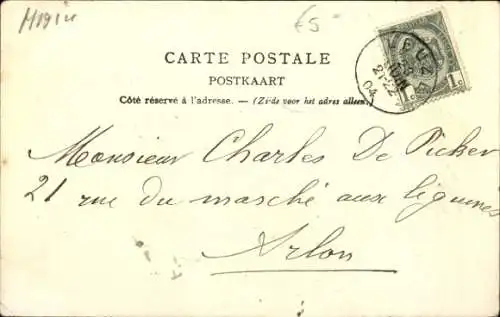 €5
CARTE POSTALE
POSTKAART
Côté réservé à l'adresse. — (Zijde voor het adres alleen.)
1c 1c
21-22
04
Monsieur Charles De Picker
21 rue du marché aux légumes
Arlon